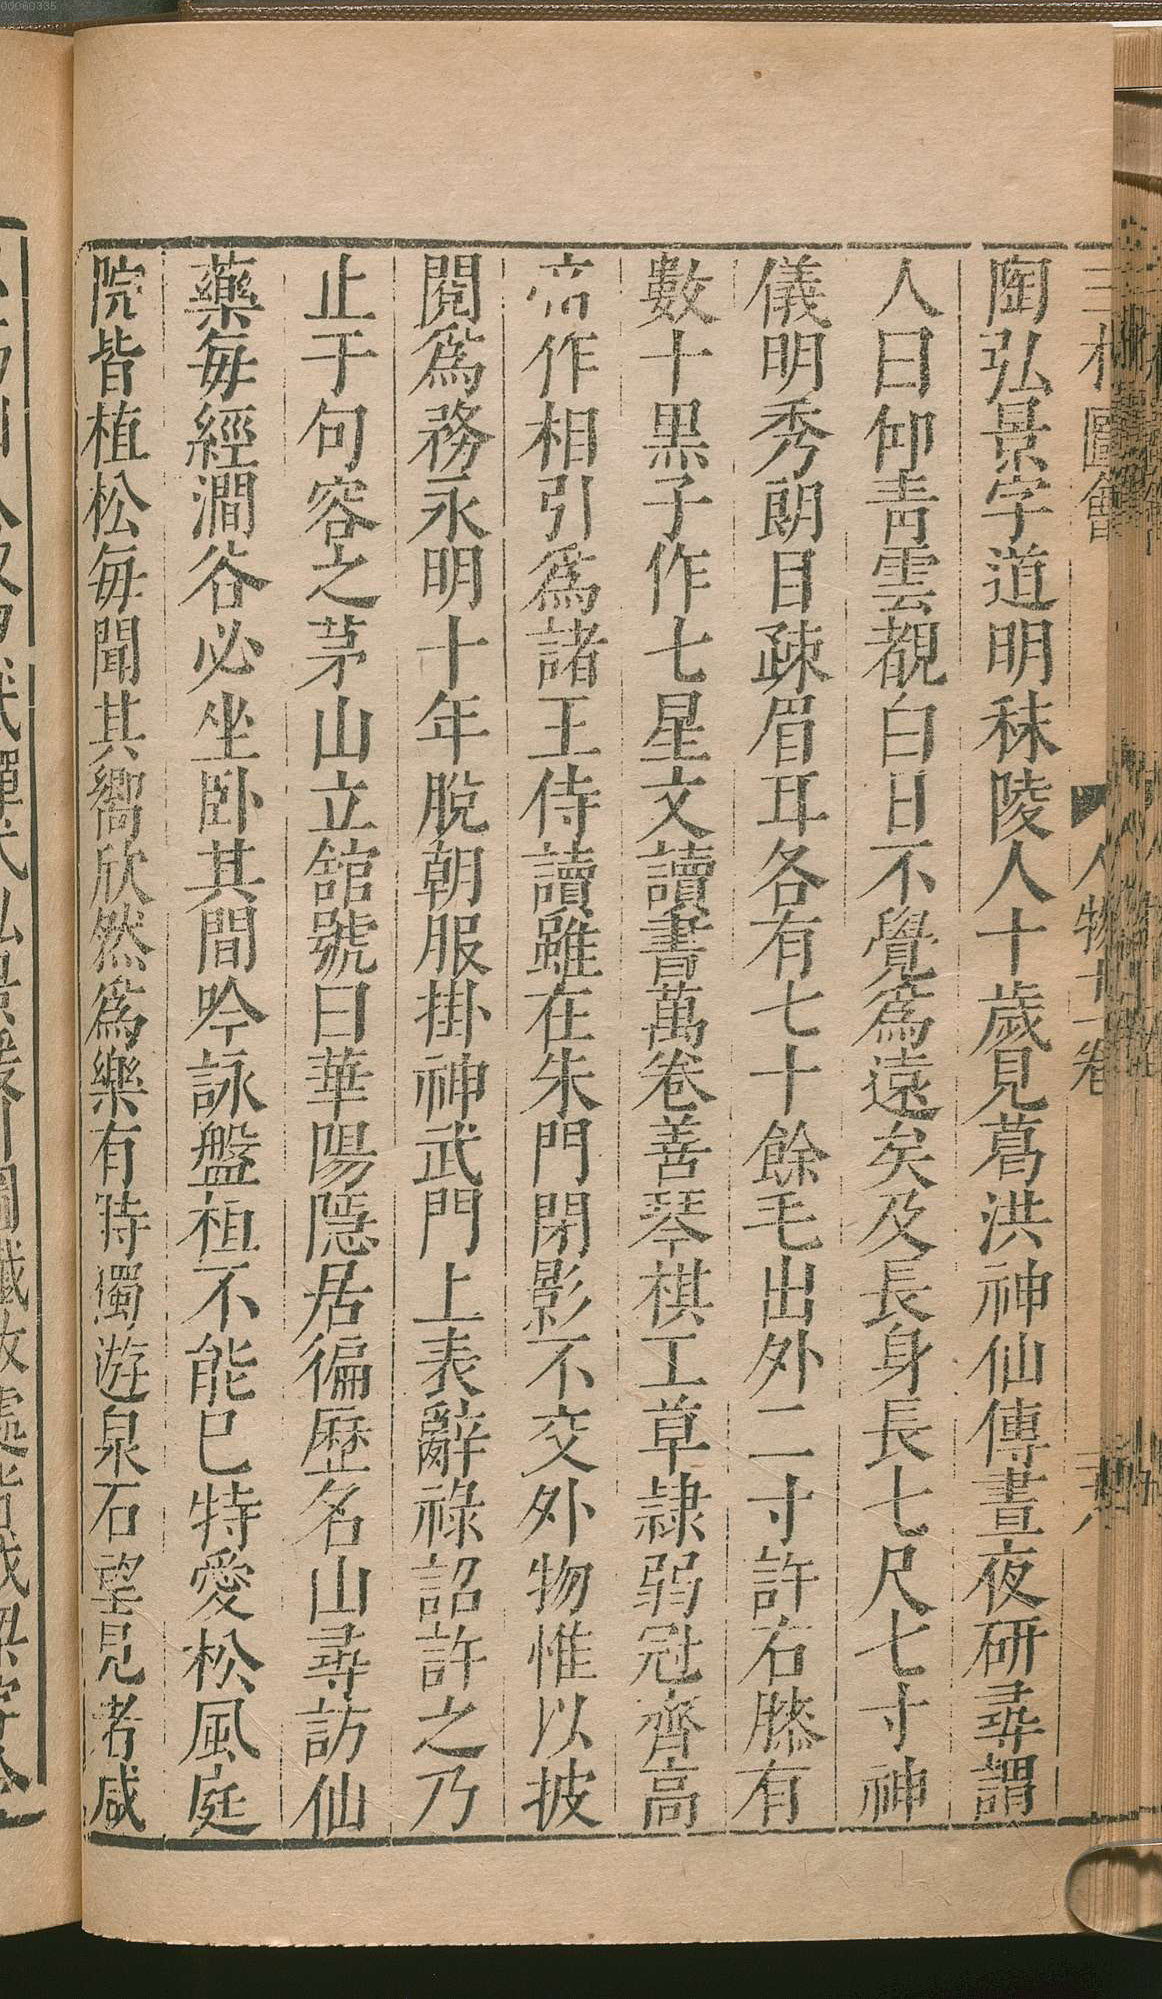 陶弘景字道明秣陵人十歲見葛洪神仙傳晝夜研尋謂
人曰仰青雲覩白日不覺爲遠矣及長身長七尺七寸神
儀明秀朗目疎眉耳各有七十餘毛出外二寸許右膝有
數十黑子作七星文讀書萬卷善琴棋工草隷弱冠齊高
帝作相引爲諸王侍讀雖在朱門閉影不交外物惟以披
閱爲務永明十年脫朝服掛神武門上表辭祿詔許之乃
止于句容之茅山立舘號曰華陽隱居徧歷名山尋訪仙
藥每經澗谷必坐卧其間吟詠盤桓不能已特愛松風庭
院皆植松每聞其嚮欣然爲樂有時獨遊泉石望見者咸
00060335